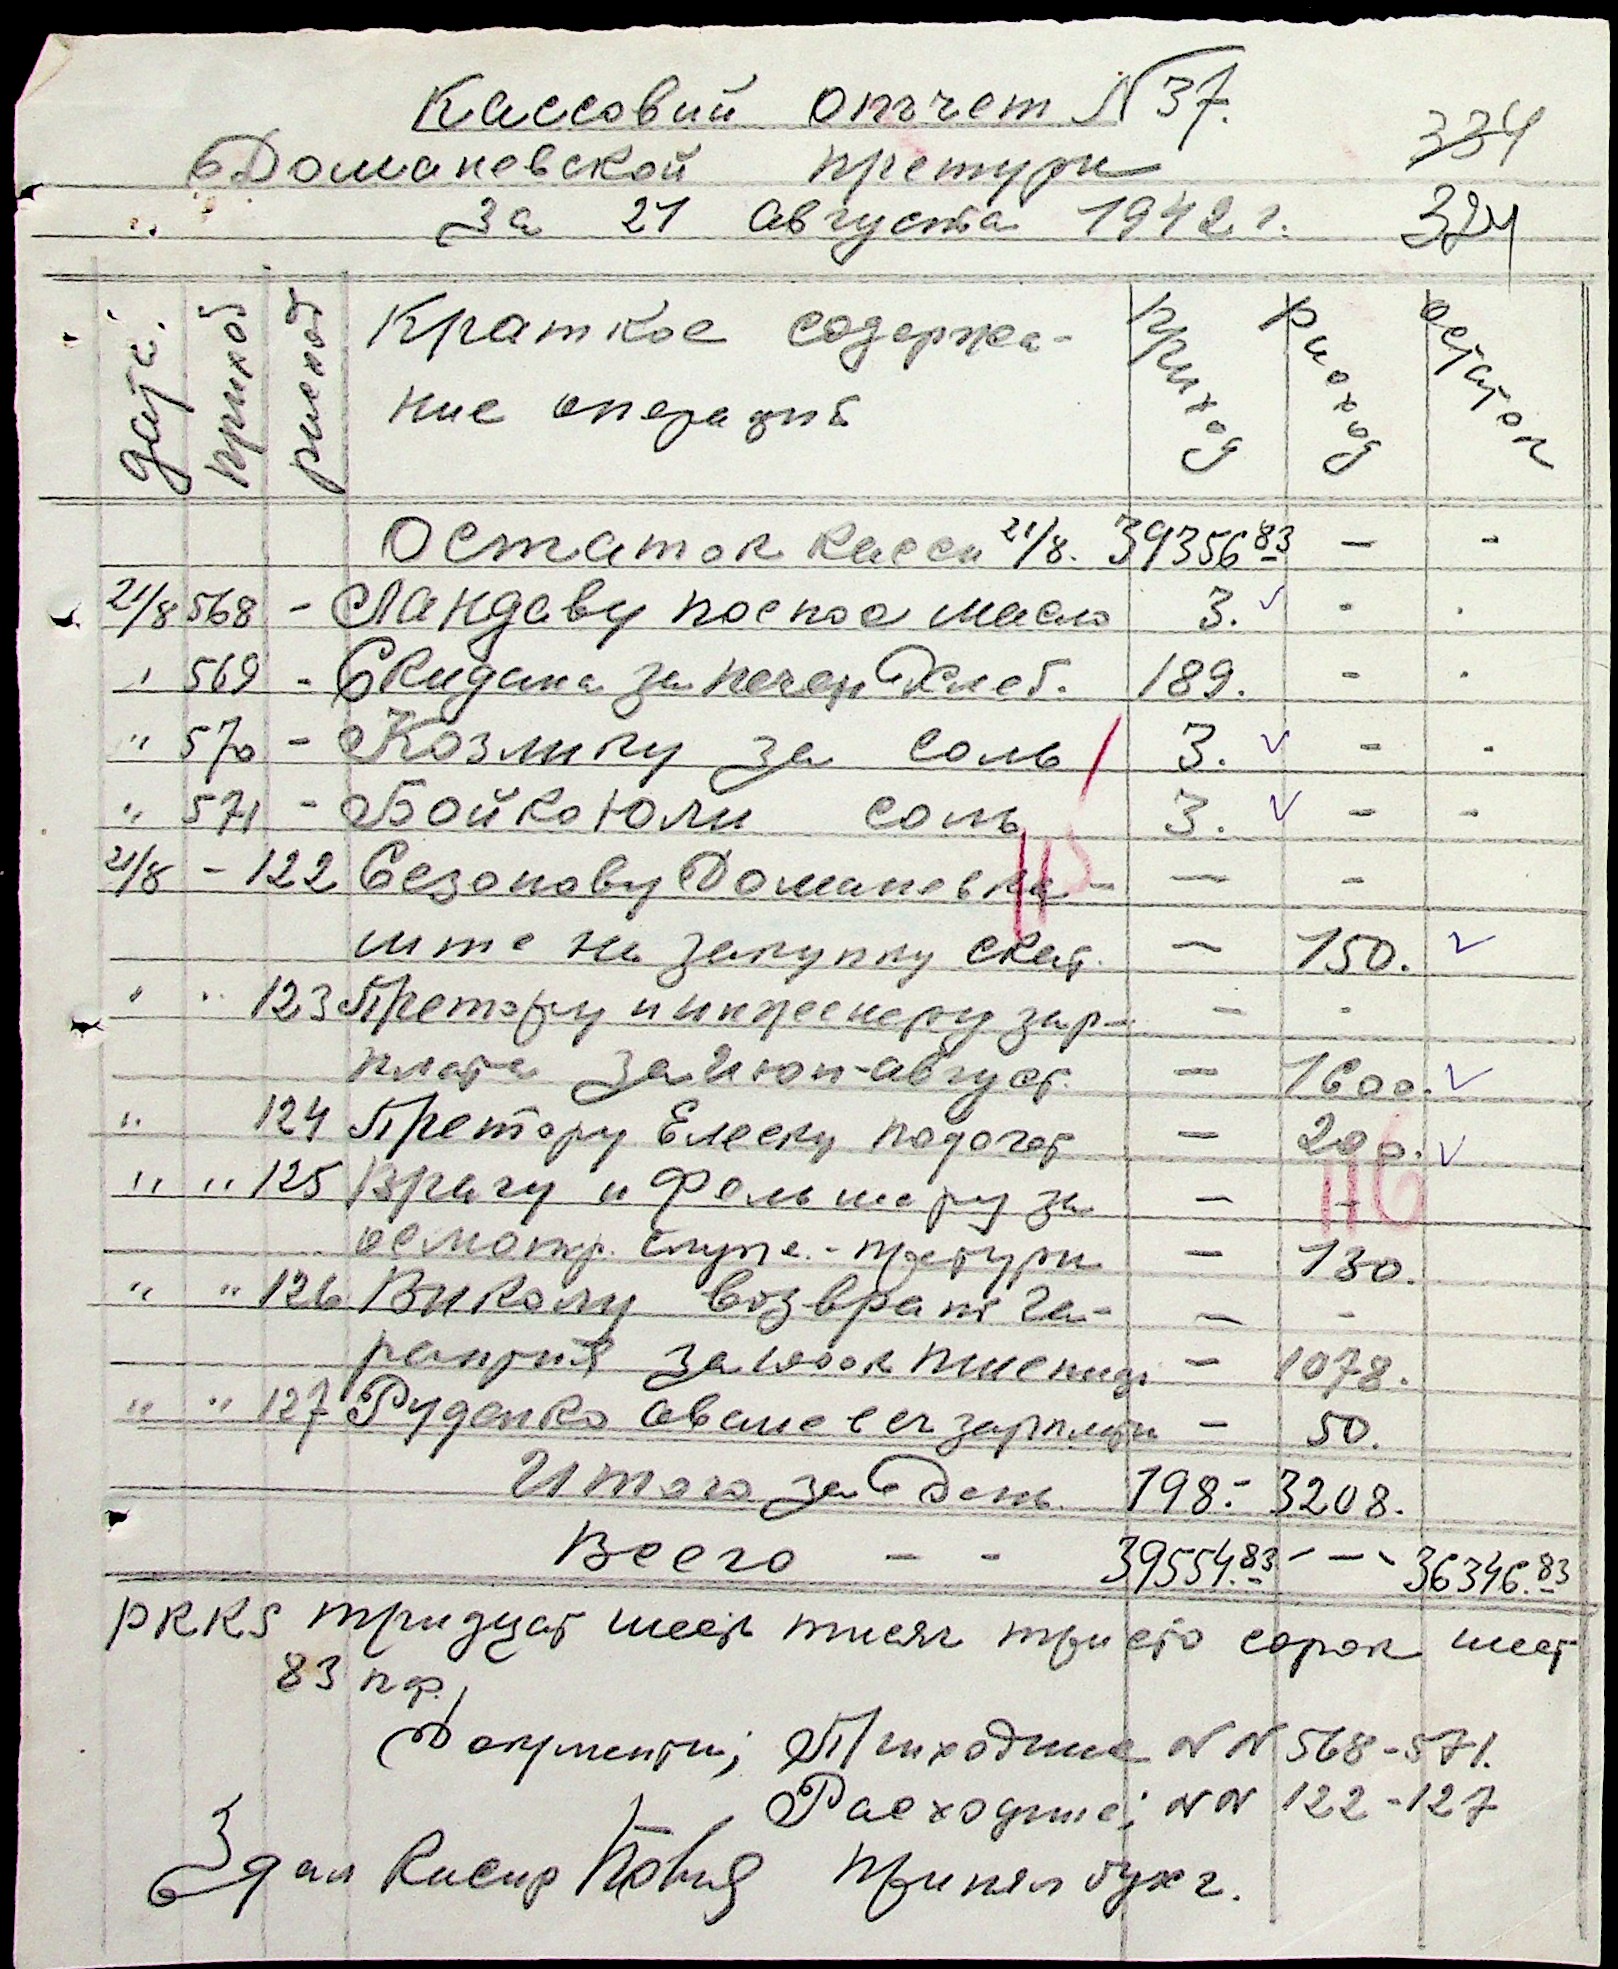 Кассовий отчет N 37.
Доманевской претури 334
За 21 августа 1942 г. 324
дата. приход расход Краткое содержа- приход расход остаток
ние операций
Остаток касси 21/8. 39356 83 - -
21/8 568 - Ландаву постное масло 3. - -
" 569 - Скидана за печен хлеб. 189. - -
" 570 - Козлику за соль 3. - -
" 571 - Бойко Юли соль 3. - -
21/8 - 122 Сезонову Доманевка- - -
на закупку скат. - 150.
" " 123 Претору и инженеру зар- - -
плата за Июл-август. - 1600.
" 124 Претору Елеску - 200.
116
" " 125 Врачу и Фельшеру за - -
осмотр. служ. - претури - 130.
" " 126 Виколу возврат га- - -
рантий за пшениц - 1078.
" " 127 Руденко аванс в сч зарплати - 50.
Итого за день 198.- 3208.
Всего - - 39554.83 - - - 36346.83
РККS тридцат шесть тисяч триста сорок шест
83 пф.
Документи; Приходние NN 568-571.
Расходние; NN 122-127
Здал Касир Принял бухг.